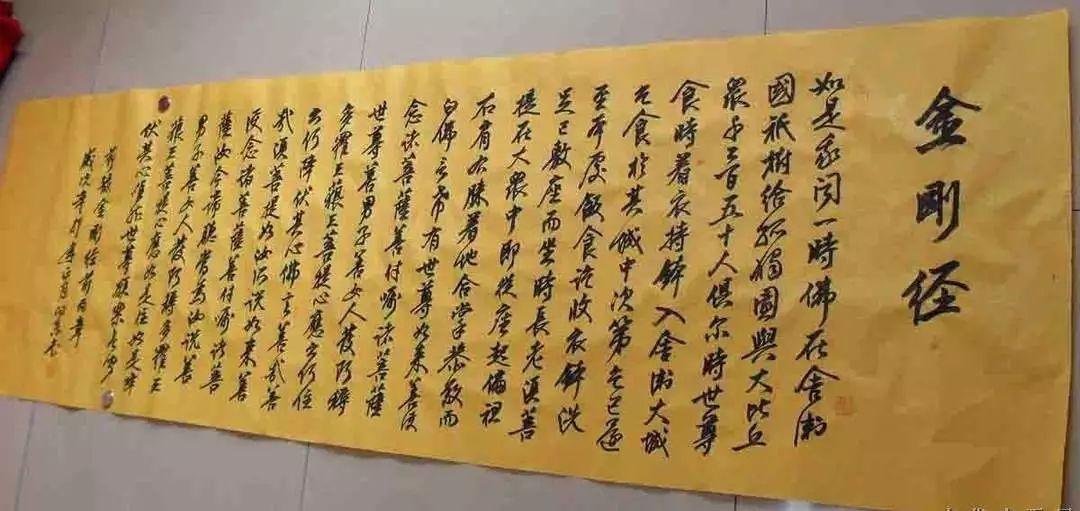 金剛经
如是我闻一時佛在舍衛
國祇樹给孤獨園與大比丘
眾千二百五十人俱尔時世尊
食時着衣持鉢入舍衛大城
乞食於其城中次第乞已還
至本處飯食讫收衣鉢洗
足已敷座而坐時長老须菩
提在大眾中即從座起偏袒
右肩右膝著地合掌恭敬而
白佛言希有世尊如来善護
念诸菩薩善付嘱诸菩薩
世尊善男子善女人發阿耨
多羅三藐三菩提心應云何住
云何降伏其心佛言善哉善
哉须菩提如汝所说如来善
護念诸菩薩善付嘱诸菩
薩汝今谛聽當為汝说善
男子善女人發阿耨多羅三
藐三菩提心應如是住如是降
伏其心唯然世尊願樂欲聞
前錄金刚经前两章